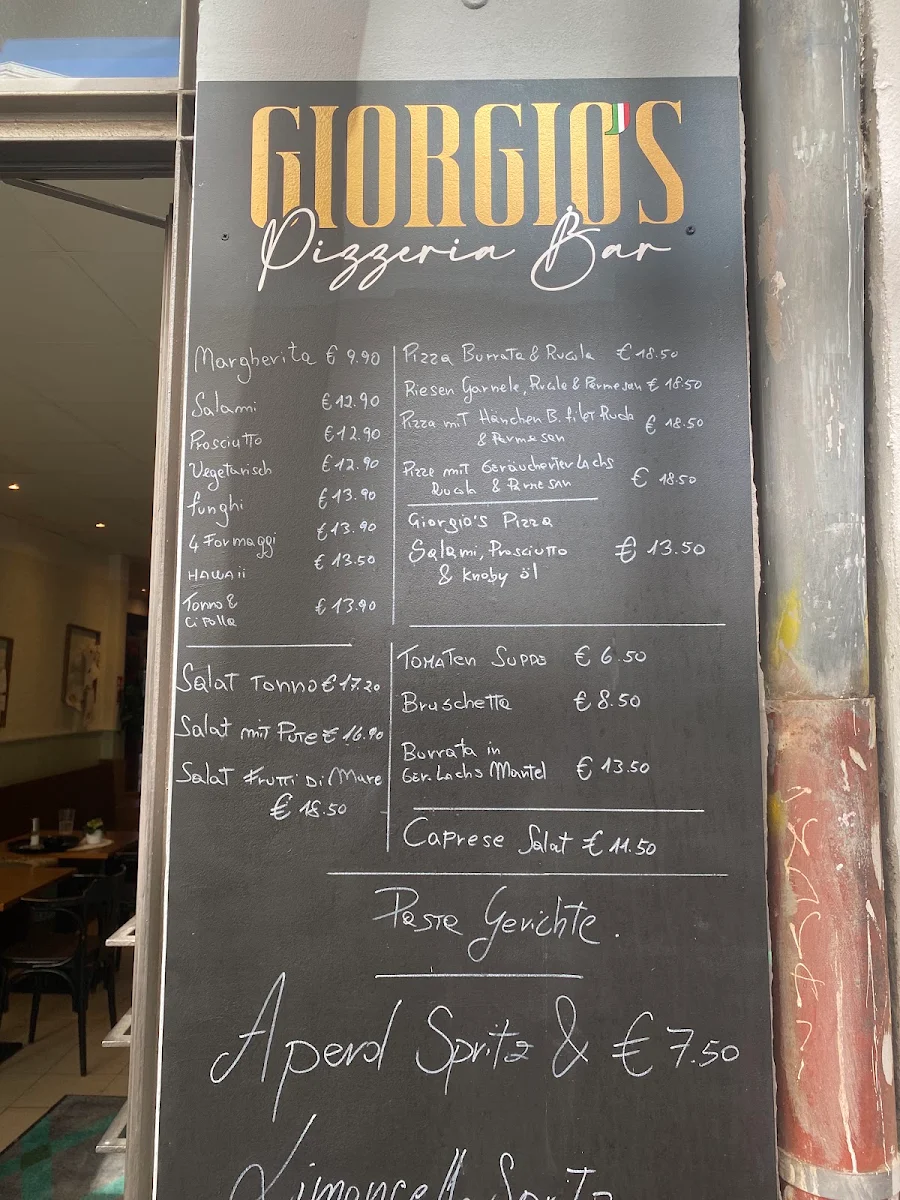 GIORGIO'S
Pizzeria Bar
Margherita € 9.90
Salami €12.90
Prosciutto €12.90
Vegetarisch €12.90
funghi €13.90
4 Formaggi €13.90
HAWAii €13.50
Tonno & €13.90
Cipolla
Pizza Burrata & Rucola €18.50
Riesen Garnele, Rucola & Parmesan € 18.50
Pizza mit Hänchen B. filet Rucola € 18.50
& Parmesan
Pizza mit Geräucherter Lachs € 18.50
Rucola & Parmesan
Giorgio's Pizza
Salami, Prosciutto € 13.50
& Knoby öl
Salat Tonno €17.20
Salat mit Pute € 16.90
Salat Frutti Di Mare
€ 18.50
TOMATen Suppe € 6.50
Bruschetta € 8.50
Burrata in
Ger. Lachs Mantel € 13.50
Caprese Salat € 11.50
Pasta Gerichte.
Aperol Spritz & € 7.50
Limoncello Spritz